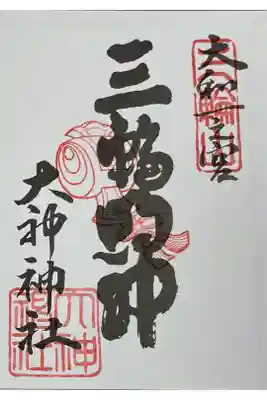 大和一之宮
三輪明神
大神神社
大神
神社